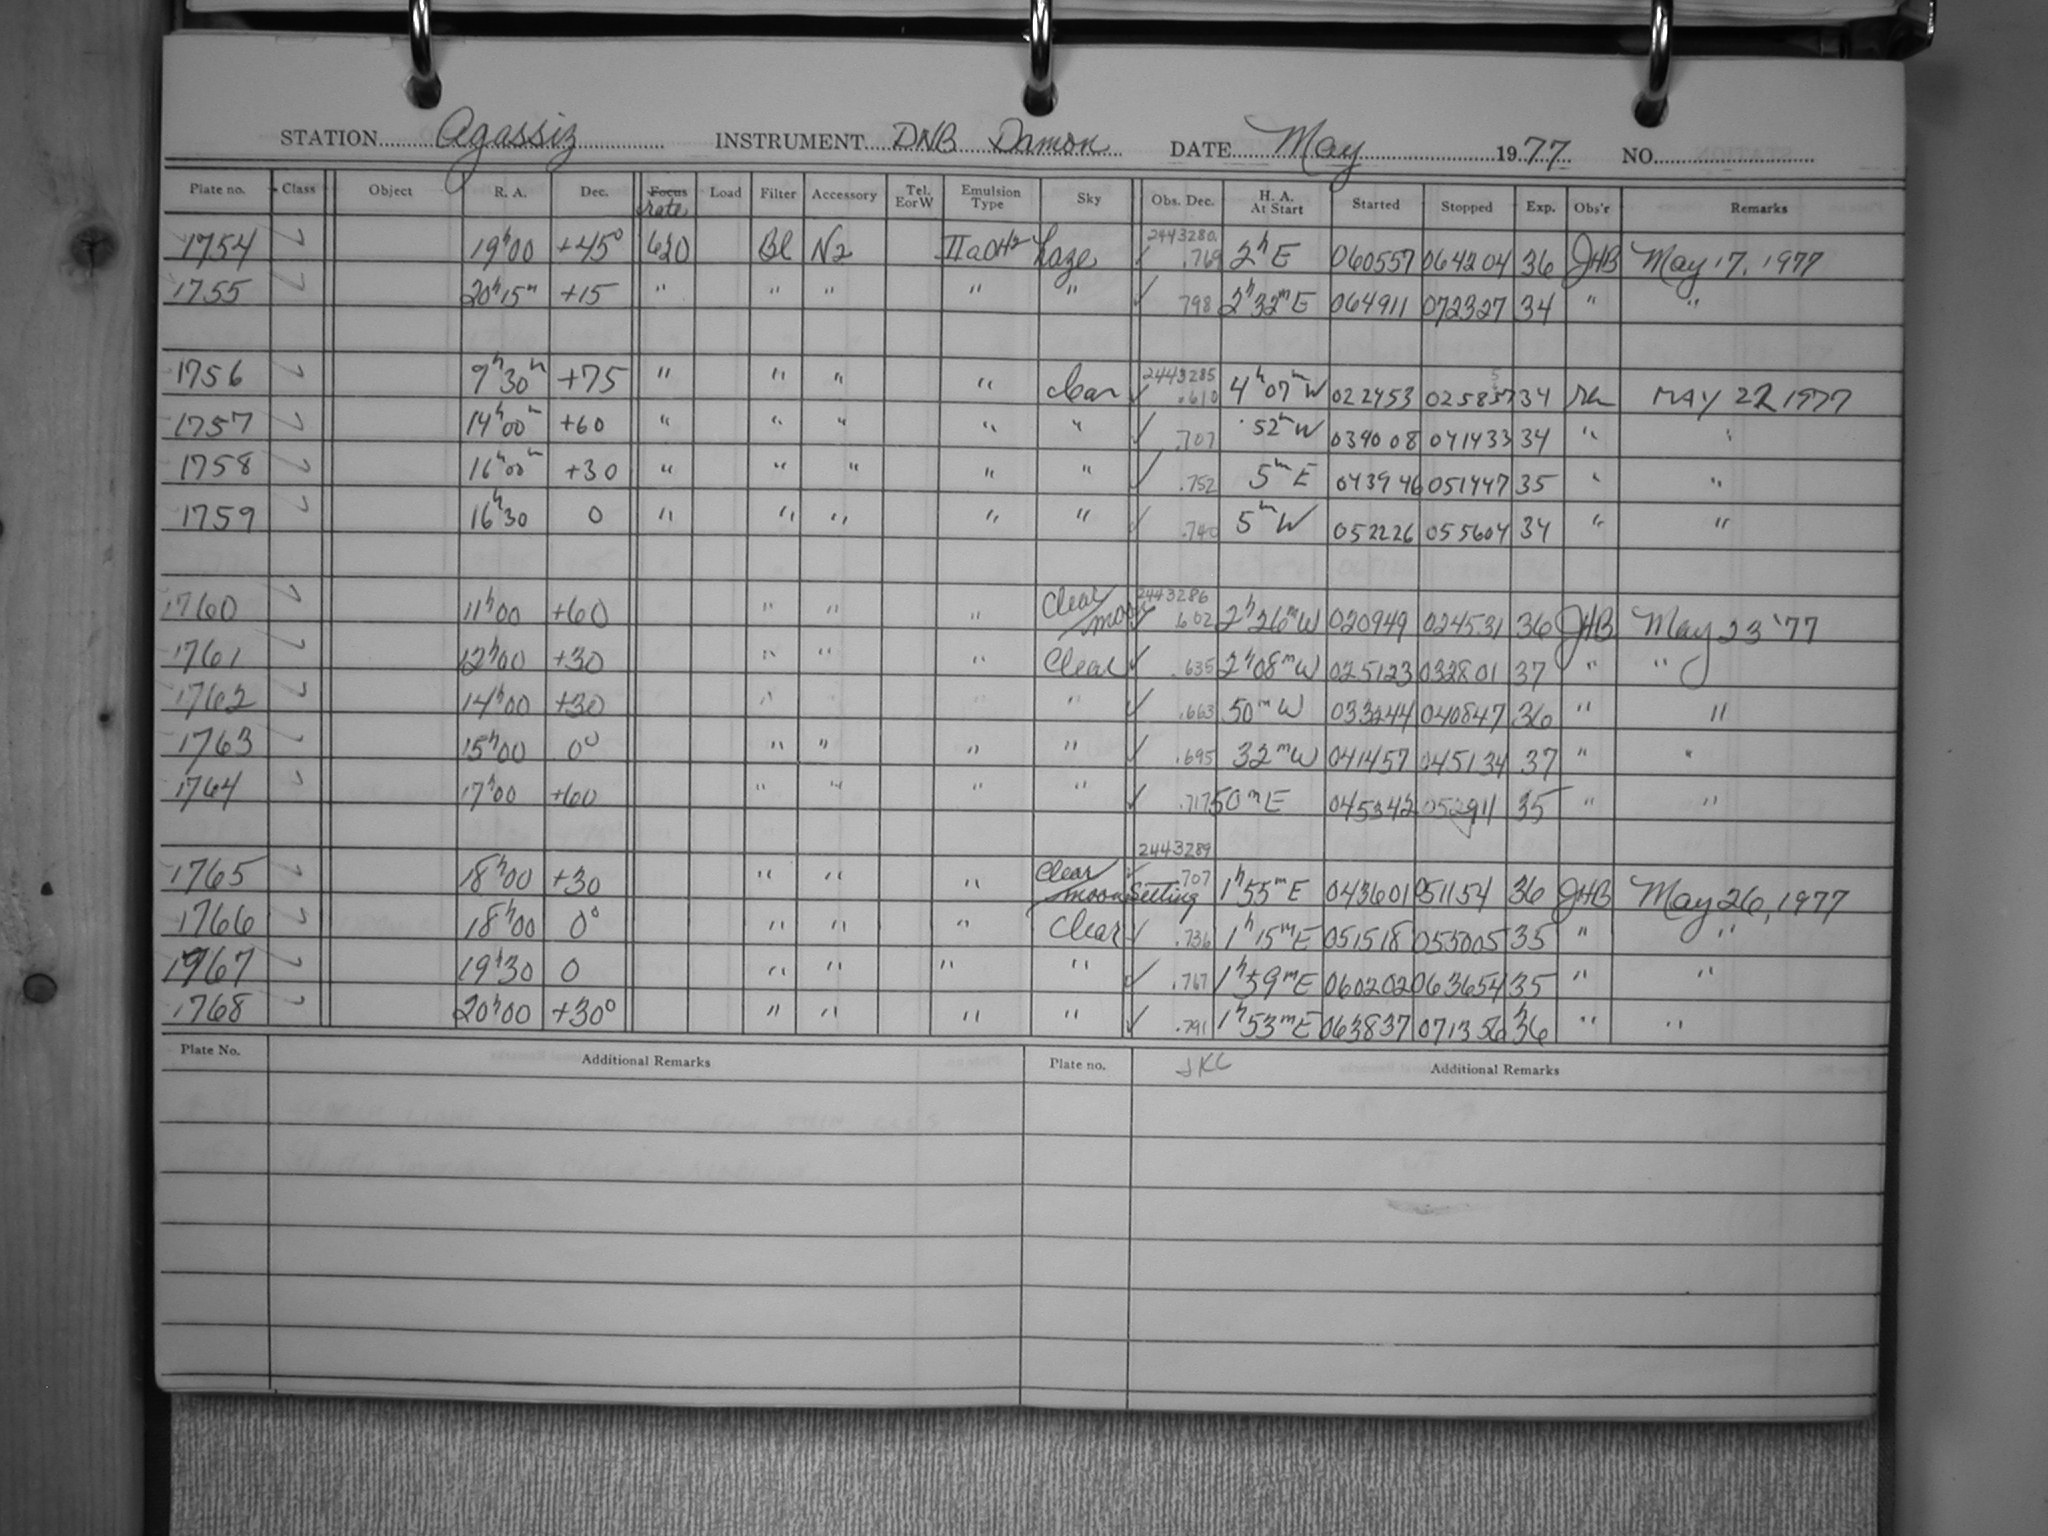 STATION Agassiz INSTRUMENT DNB Damon DATE May 1977 NO.
Plate no. Class Object R. A. Dec. Focus rate Load Filter Accessory Tel. E or W Emulsion Type Sky Obs. Dec. H. A. At Start Started Stopped Exp. Obs'r Remarks
2443280.
1754 ✓ 19h00 +45° 620 Bl N2 IIaOH2 haze ✓ .769 2h E 060557 064204 36 JHB May 17, 1977
1755 ✓ 20h15m +15 " " " " " ✓ .798 2h32mE 064911 072327 34 " "
2443285
1756 ✓ 9h30m +75 " " " " clear ✓ .610 4h07mW 022453 025857 34 MAY 22 1977
1757 ✓ 14h00m +60 " " " " " ✓ .707 52mW 034008 041433 34 " "
1758 ✓ 16h00m +30 " " " " " ✓ .752 5mE 043946 051447 35 " "
1759 ✓ 16h30 0 " " " " " ✓ .740 5mW 052226 055604 34 " "
2443286
1760 ✓ 11h00 +60 " " " Clear/moon ✓ .602 2h26mW 020949 024531 36 JHB May 23 '77
1761 ✓ 12h00 +30 " " " Clear ✓ .635 2h08mW 025123 032801 37 " "
1762 ✓ 14h00 +30 " " " " ✓ .663 50mW 033244 040847 36 " "
1763 ✓ 15h00 0° " " " " ✓ .695 32mW 041457 045134 37 " "
1764 ✓ 17h00 +60 " " " " ✓ .717 50mE 045342 052911 35 " "
2443289
1765 ✓ 18h00 +30 " " " Clear/moon setting ✓ .707 1h55mE 043601 051154 36 JHB May 26, 1977
1766 ✓ 18h00 0° " " " Clear ✓ .736 1h15mE 051518 055005 35 " "
1767 ✓ 19h30 0 " " " " ✓ .767 1h59mE 060202 063654 35 " "
1768 ✓ 20h00 +30° " " " " ✓ .791 1h53mE 063837 071356 36 " "
Plate No. Additional Remarks Plate no. JKC Additional Remarks